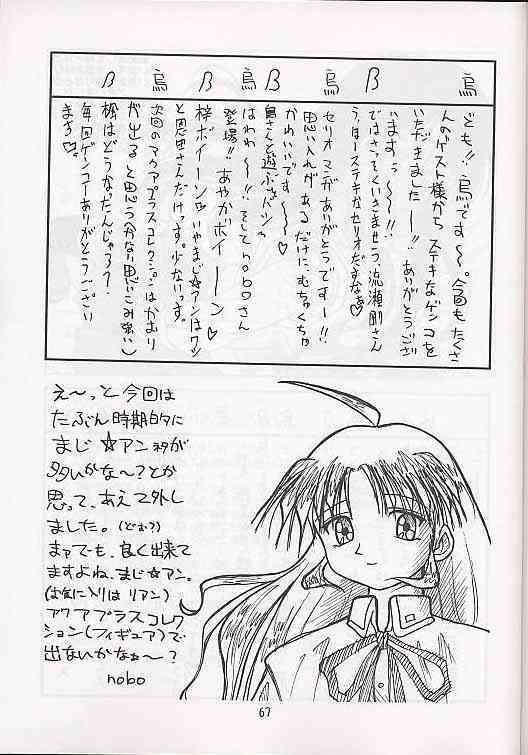 烏 β 烏 β 烏 β 烏 β
ども!!烏です〜〜。今回もたくさ
んのゲスト様からステキなゲンコを
いただきましたー!!ありがとうござ
いますっ〜!!
ではさっそくいきませう。流瀬剛さん
うっほーステキなセリオだすなぁ♡
セリオマンガありがとうですー!!
思い入れがあるだけにむちゃくちゃ
かわいいです〜〜♡
烏さんと遊ぶさん
はわわ〜!!そしてnoboさん
登場!!あやかボイーン
梓ボイーン♡いやまじ☆アンはワシ
と恩田さんだけっす。少ないっす。
次回のアクアプラスコレクションはかおり
が出ると思う(へんな思いこみ強い)
楓はどうなったんじゃろ?
毎回ゲンコーありがとうござい
ます♡。
え〜っと今回は
たぶん時期的に
まじ☆アンネタが
多いかな〜?とか
思って、あえて外し
ました。(どむ?)
まァでも、良く出来て
ますよね、まじ☆アン。
(お気に入りは リアン)
アクアプラスコレク
ション(フィギュア)で
出ないかなぁ〜?
nobo
67